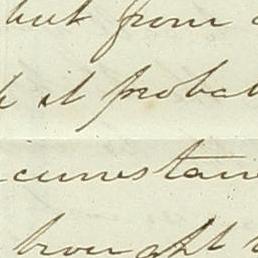 but from
it probab
cumstan
brought